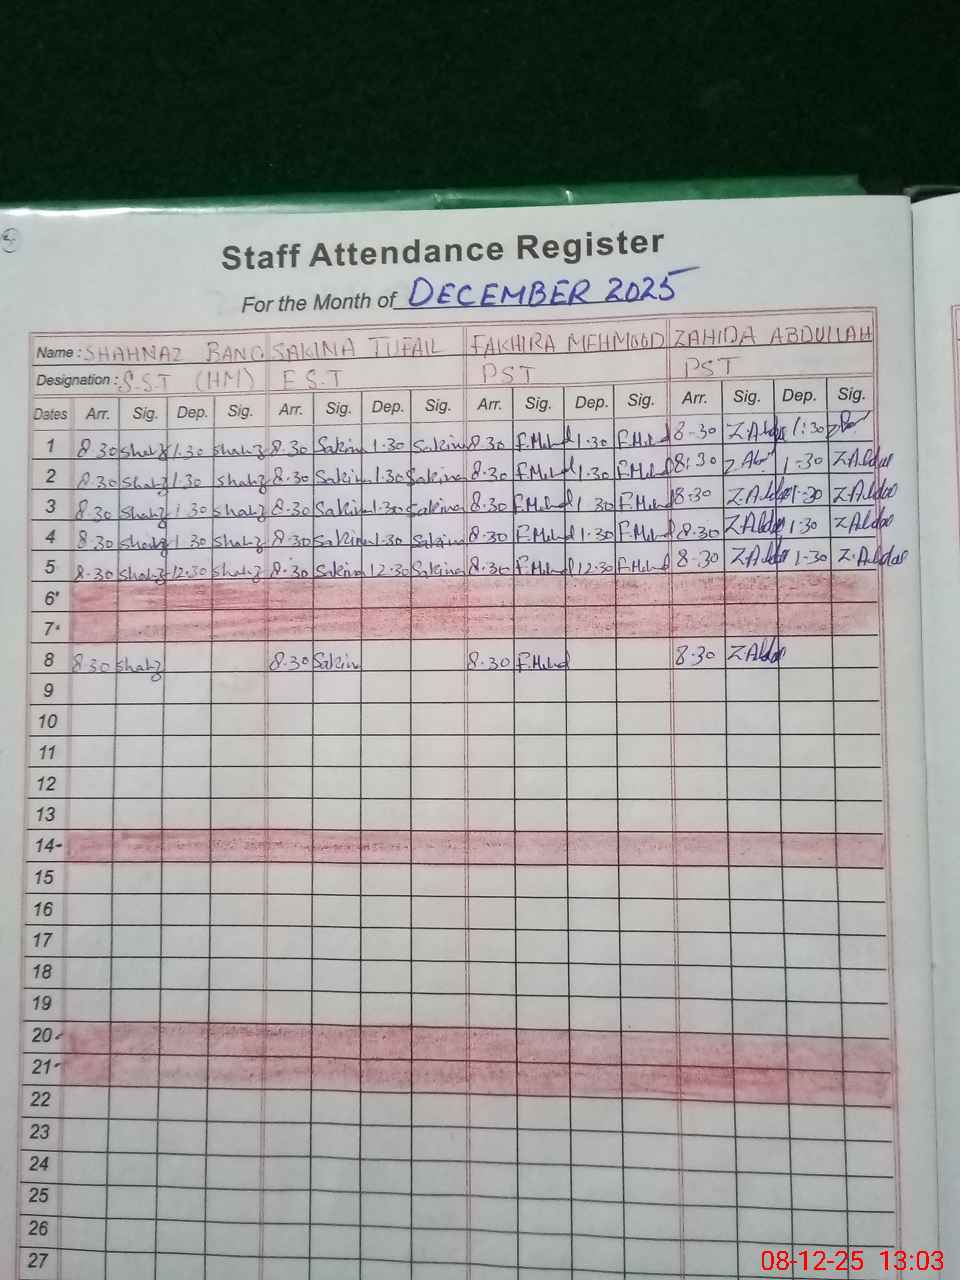 Staff Attendance Register
For the Month of DECEMBER 2025
Name : SHAHNAZ BANO SAKINA TUFAIL FAKHIRA MEHMOOD ZAHIDA ABDULLAH
Designation : S.S.T (HM) E S.T PST PST
Dates Arr. Sig. Dep. Sig. Arr. Sig. Dep. Sig. Arr. Sig. Dep. Sig. Arr. Sig. Dep. Sig.
1 8.30 Shahz 1.30 Shahz 8.30 Sakina 1.30 Sakina 8.30 F.Mehd 1.30 F.Mehd 8-30 1:30
2 8.30 Shahz 1.30 Shahz 8.30 Sakina 1.30 Sakina 8.30 F.Mehd 1.30 F.Mehd 8:30 1-30
3 8.30 Shahz 1.30 Shahz 8.30 Sakina 1.30 Sakina 8.30 F.Mehd 1.30 F.Mehd 8.30 1-30
4 8.30 Shahz 1.30 Shahz 8.30 Sakina 1.30 Sakina 8.30 F.Mehd 1.30 F.Mehd 8.30 1-30
5 8.30 Shahz 12.30 Shahz 8.30 Sakina 12.30 Sakina 8.30 F.Mehd 12.30 F.Mehd 8-30 1-30
6
7
8 8.30 Shahz 8.30 Sakina 8.30 F.Mehd 8.30
9
10
11
12
13
14
15
16
17
18
19
20
21
22
23
24
25
26
27
08-12-25 13:03